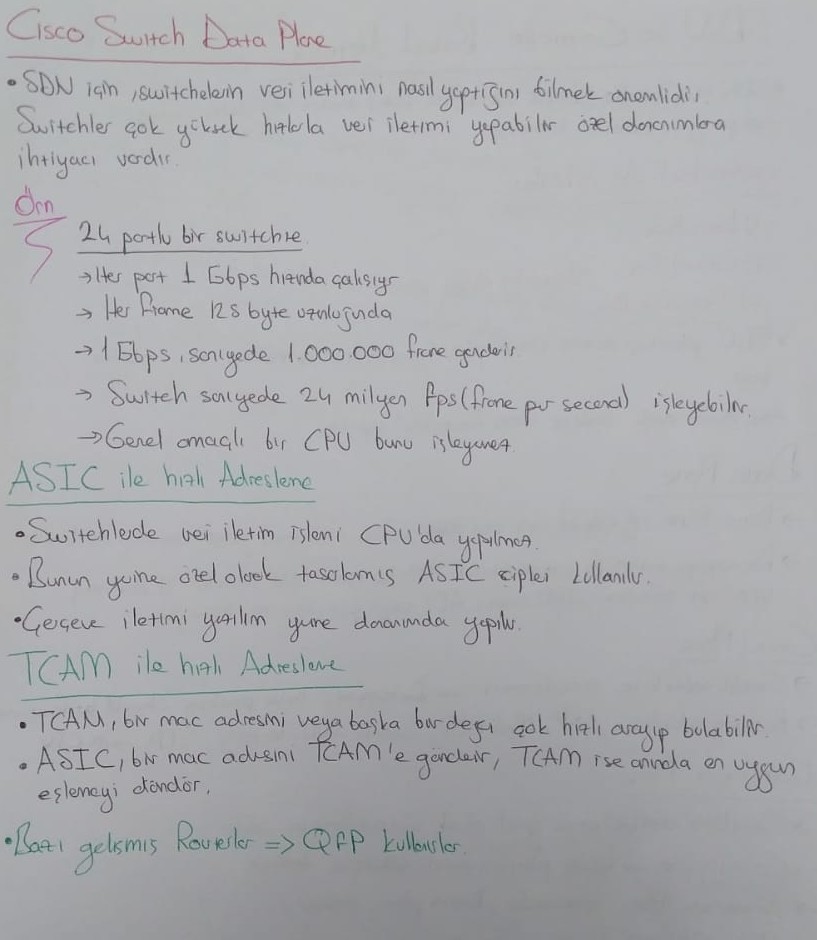 Cisco Switch Data Plane
• SDN için, switchelerin veri iletimini nasıl yaptığını bilmek önemlidir.
Switchler çok yüksek hızlarla veri iletimi yapabilir özel donanımlara
ihtiyacı vardır.
Örn
24 portlu bir switchte
→ Her port 1 Gbps hızında çalışıyr
→ Her frame 128 byte uznluğunda
→ 1 Gbps, saniyede 1.000.000 frame gönderir.
→ Switch saniyede 24 milyon fps (frame per second) işleyebilir.
→ Genel amaçlı bir CPU bunu işleyemez
ASIC ile hızlı Adresleme
• Switchlerde veri iletim işlemi CPU'da yapılmaz.
• Bunun yerine özel olarak tasarlanmış ASIC çipleri kullanılır.
• Çerçeve iletimi yazılım yerine donanımda yapılır.
TCAM ile hızlı Adresleme
• TCAM, bir mac adresini veya başka bir değeri çok hızlı arayıp bulabilir.
• ASIC, bir mac adresini TCAM'e gönderir, TCAM ise anında en uygun
eşlemeyi döndür.
• Bazı gelişmiş Routerlar => QFP kullanırlar.